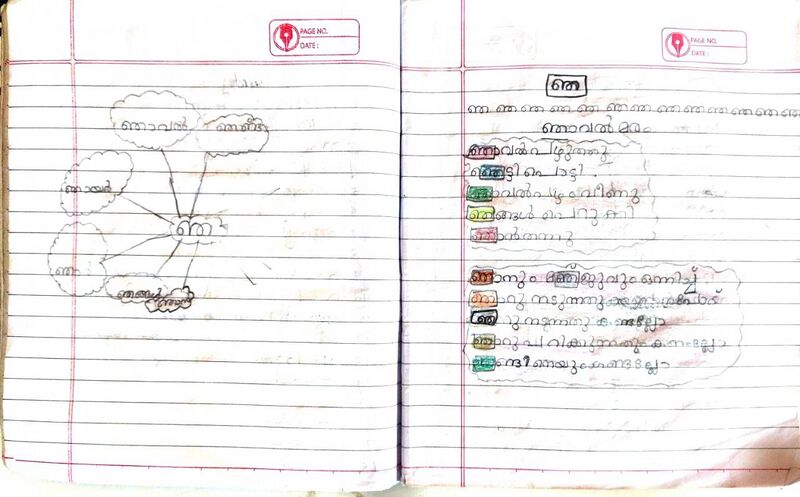 PAGE NO.
DATE :
ഞാവൽ
ഞണ്ട്
ഞായർ
ഞ
ഞാ
ഞങ്ങൾ
ഞാൻ
PAGE NO.
DATE :
ഞ
ഞ ഞ ഞ ഞ ഞ ഞ ഞ ഞ ഞ ഞ ഞ ഞ
ഞാവൽ മരം
ഞാവൽ പഴുത്തു
ഞെട്ടി പൊട്ടി .
ഞാവൽപഴം വീണു
ഞങ്ങൾ പെറുക്കി
ഞാൻതന്നു
ഞാനും മഞ്ജുവും ഒന്നിച്ച്
ഞാറു നടുന്നതു
ഞാറു നടുന്നതു കണ്ടല്ലോ
ഞാറു പറിക്കുന്നതും കണ്ടല്ലോ
ഞണ്ടിനെയും കണ്ടല്ലോ